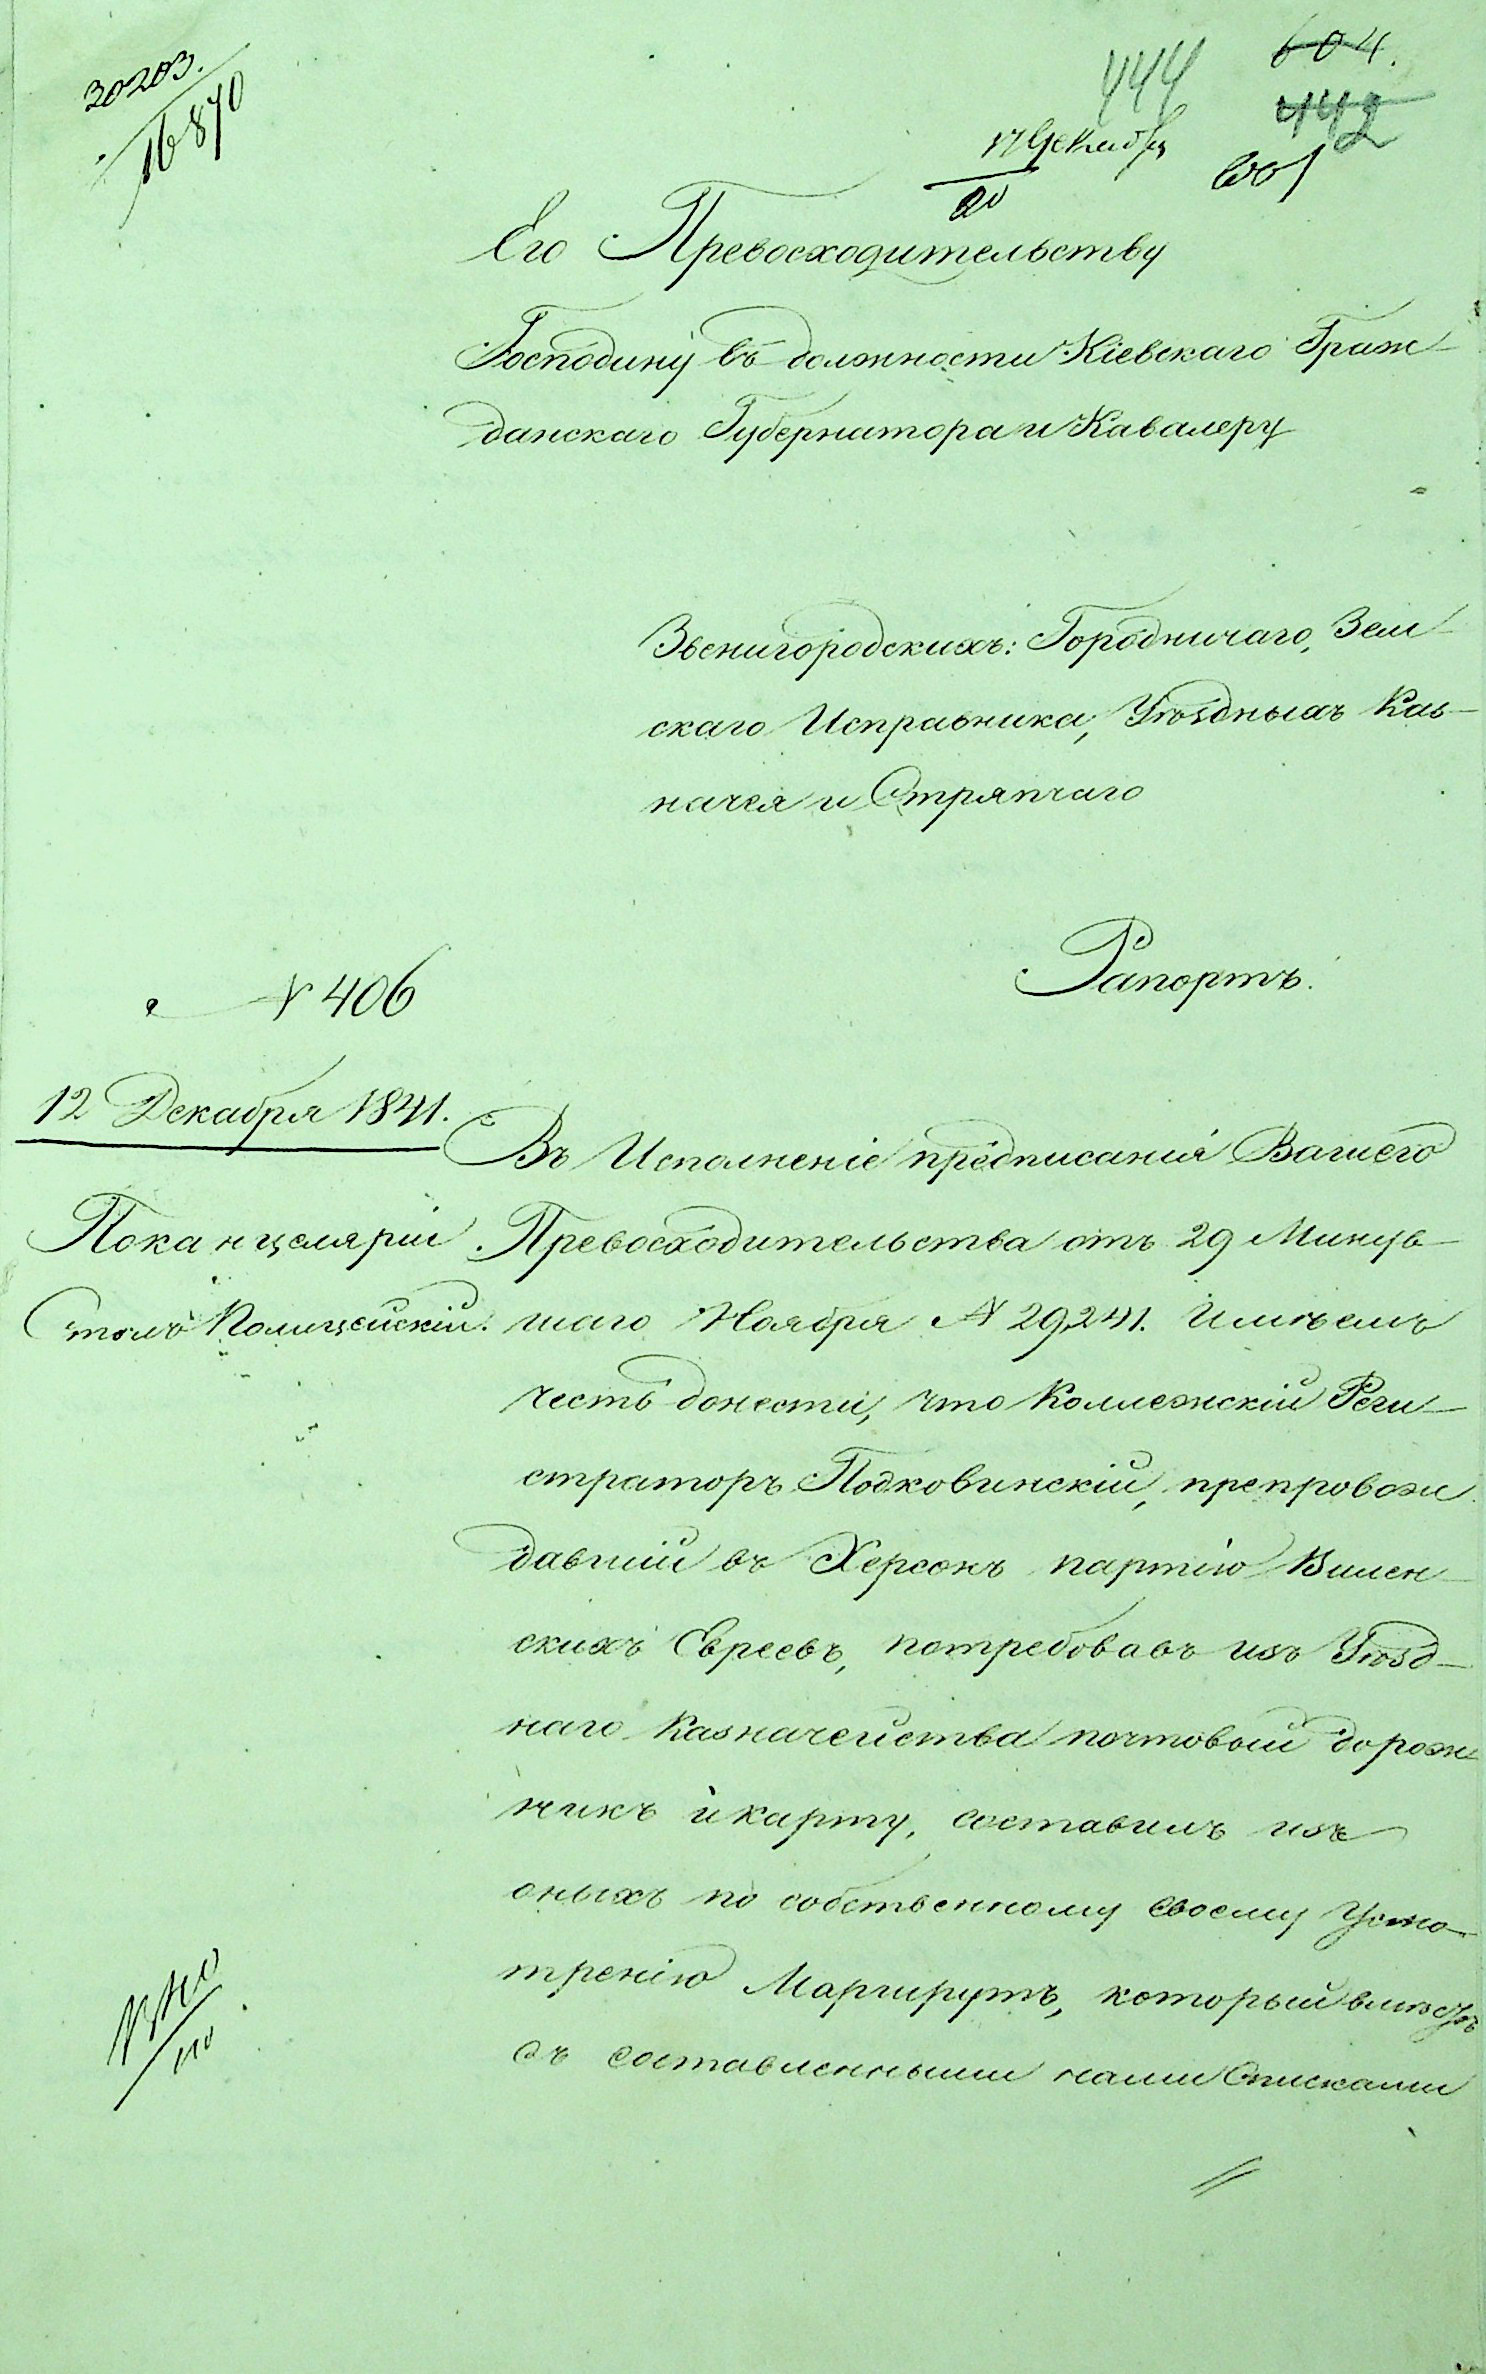 30203.
16870
444
604.
442
17 Декабря
20
601
Его Превосходительству
Господину въ должности Кіевскаго Граж-
данскаго Губернатора и Кавалеру
Звенигородскихъ: Городничаго, Зем-
скаго Исправника, Уѣздныхъ Каз-
начея и Стряпчаго
Рапортъ.
№ 406
12 Декабря 1841.
По канцеляріи
Столъ Полицейскій.
Въ Исполненіе предписанія Вашего
Превосходительства отъ 29 Минув-
шаго Ноября № 29,241. Имѣемъ
честь донести, что Коллежскій Реги-
страторъ Подковинскій, препровож
давшій въ Херсонъ партію Вилен-
скихъ Евреевъ, потребовавъ изъ Уѣзд-
наго Казначейства почтовый дорож-
никъ и карту, составилъ изъ
оныхъ по собственному своему Усмо-
трѣнію Маршрутъ, который вмѣстѣ
съ составленными нами Списками